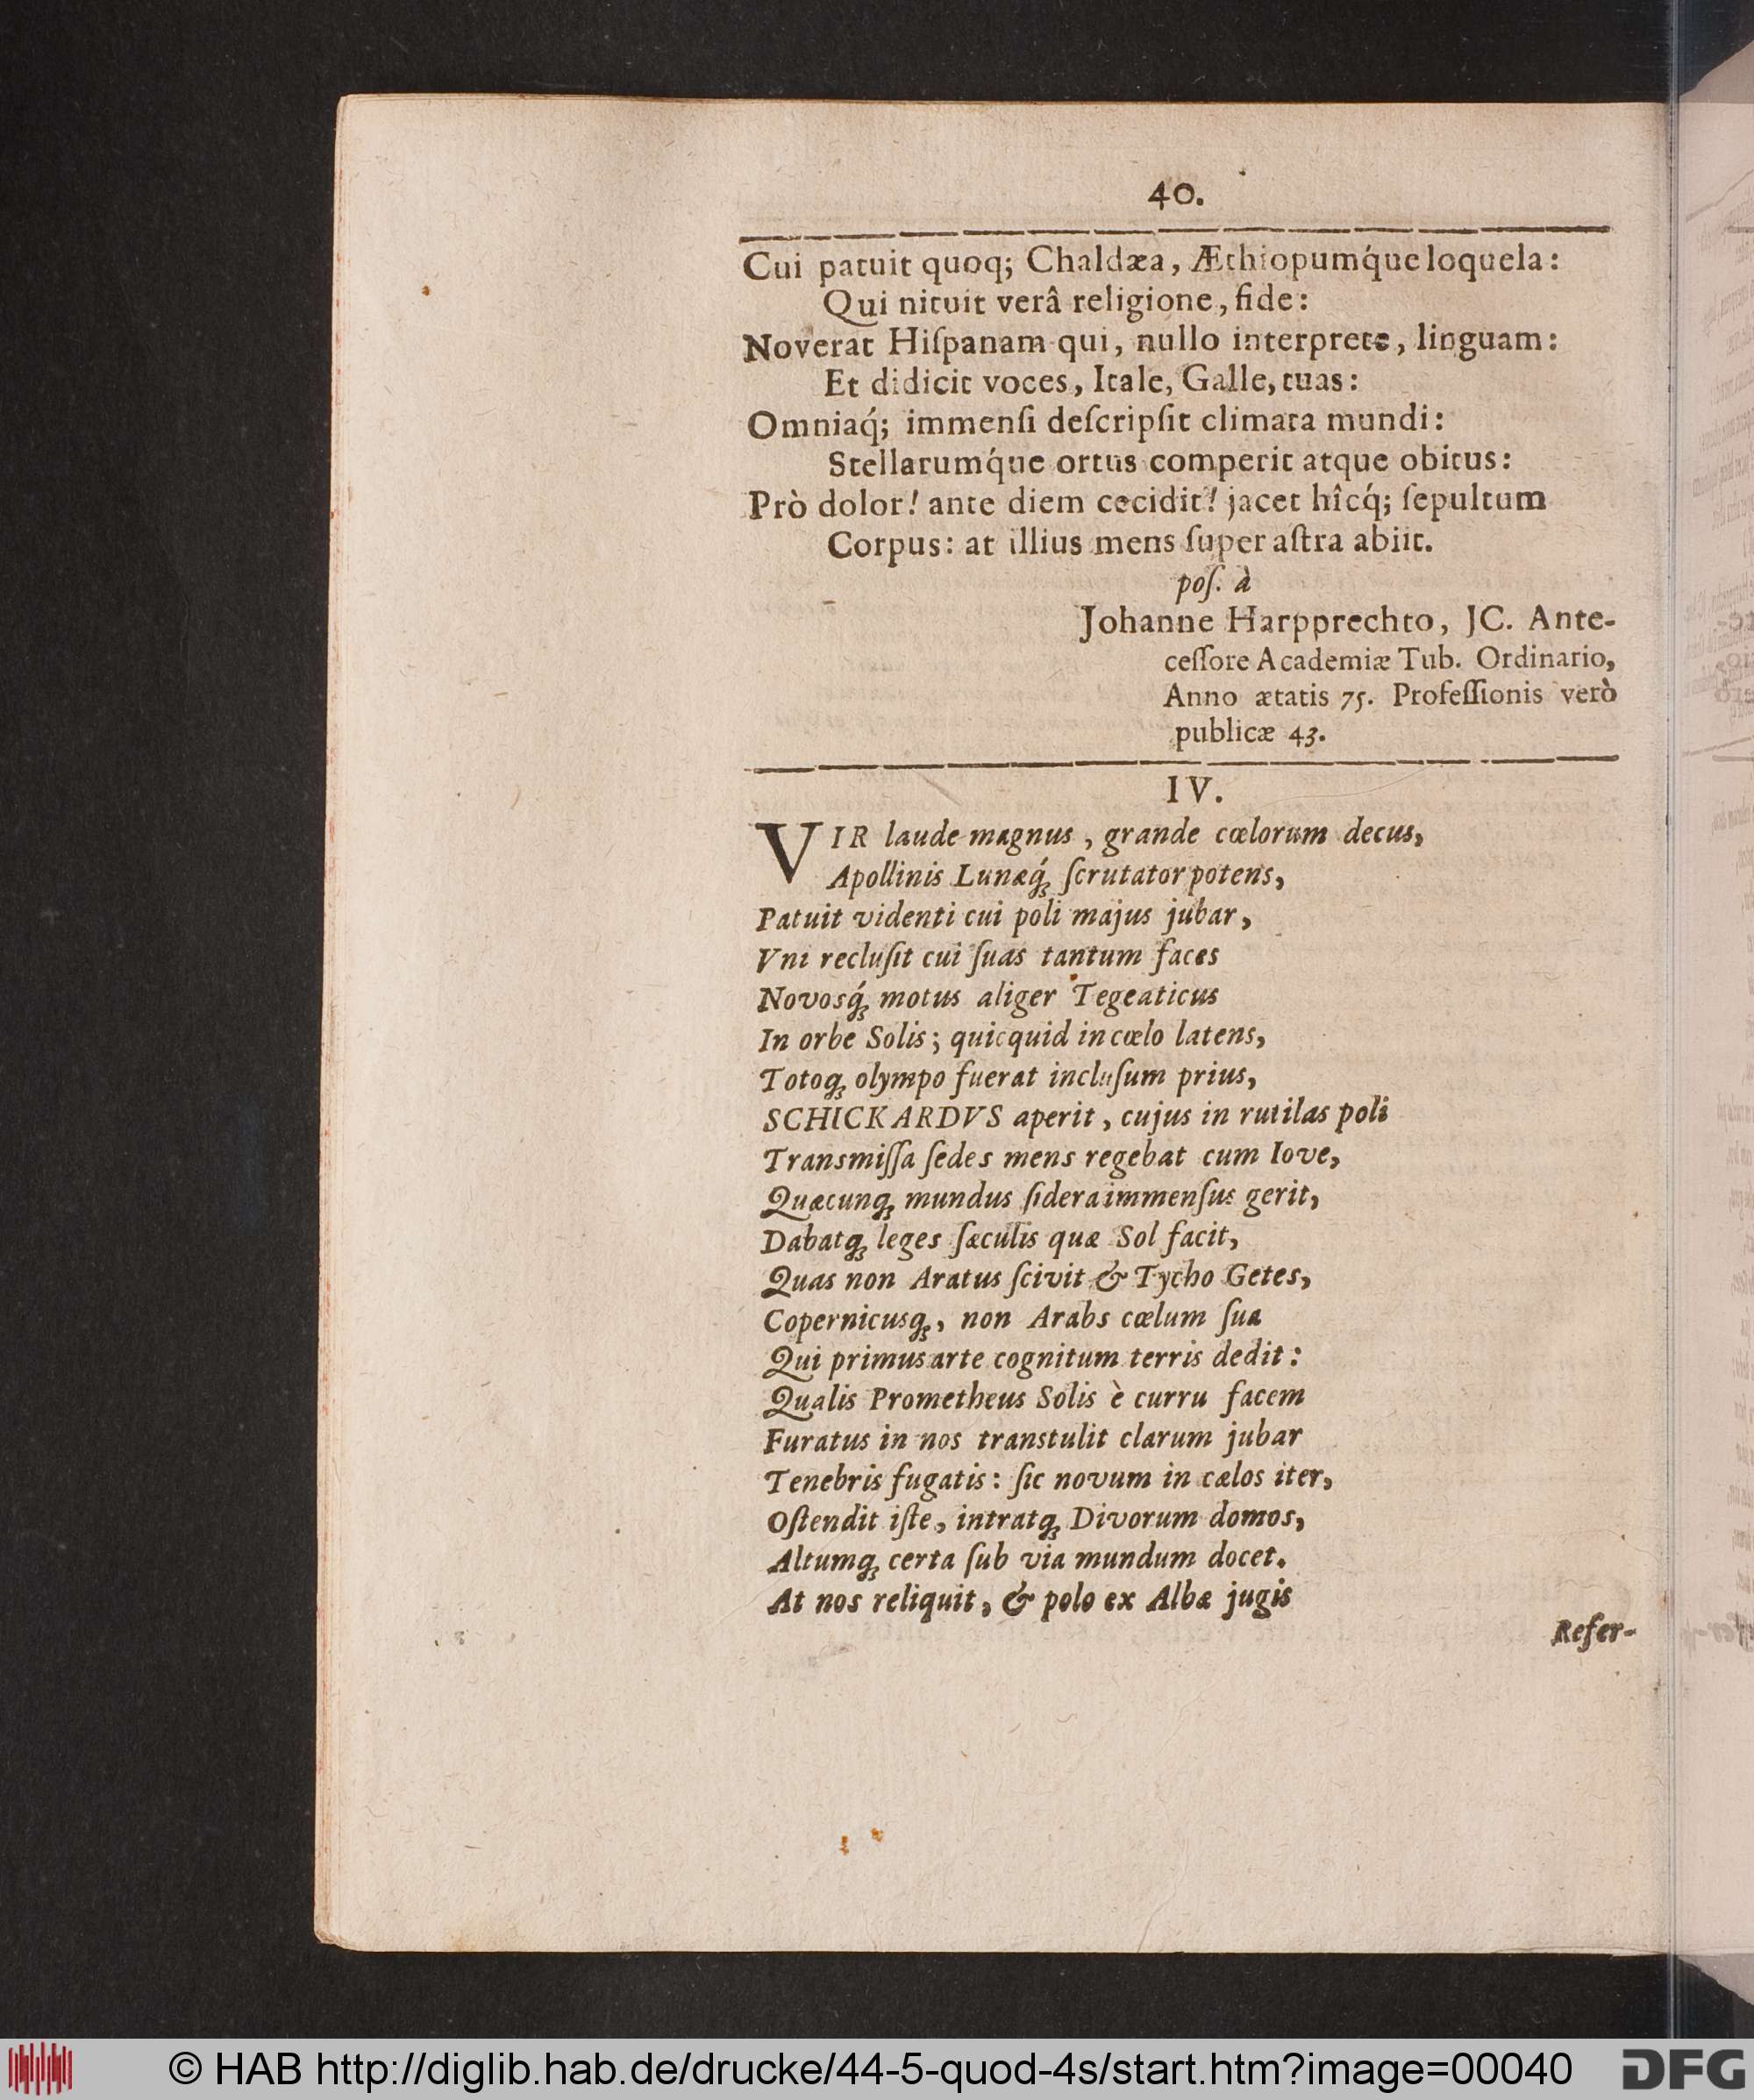 40.
Cui patuit quoq; Chaldæa, Æthiopumq́ue loquela:
Qui nituit verâ religione, fide:
Noverat Hiſpanam qui, nullo interprete, linguam:
Et didicit voces, Itale, Galle, tuas:
Omniaq́; immenſi deſcripſit climata mundi:
Stellarumq́ue ortus comperit atque obitus:
Prò dolor! ante diem cecidit! jacet hîcq́; ſepultum
Corpus: at illius mens ſuper aſtra abiit.
poſ. à
Johanne Harpprechto, JC. Ante-
ceſſore Academiæ Tub. Ordinario,
Anno ætatis 75. Profeſſionis verò
publicæ 43.
IV.
VIR laude magnus, grande cœlorum decus,
Apollinis Lunæq́ꝫ ſcrutator potens,
Patuit videnti cui poli majus jubar,
Vni recluſit cui ſuas tantum faces
Novosq́ꝫ motus aliger Tegeaticus
In orbe Solis; quicquid in cœlo latens,
Totoqꝫ olympo fuerat incluſum prius,
SCHICKARDVS aperit, cujus in rutilas poli
Transmiſſa ſedes mens regebat cum Iove,
Quæcunqꝫ mundus ſidera immenſus gerit,
Dabatqꝫ leges ſæculis quæ Sol facit,
Quas non Aratus ſcivit & Tycho Getes,
Copernicusqꝫ, non Arabs cœlum ſua
Qui primus arte cognitum terris dedit:
Qualis Prometheus Solis è curru facem
Furatus in nos transtulit clarum jubar
Tenebris fugatis: ſic novum in cælos iter,
Oſtendit iſte, intratqꝫ Divorum domos,
Altumqꝫ certa ſub via mundum docet.
At nos reliquit, & polo ex Albæ jugis
Refer-
© HAB http://diglib.hab.de/drucke/44-5-quod-4s/start.htm?image=00040
DFG